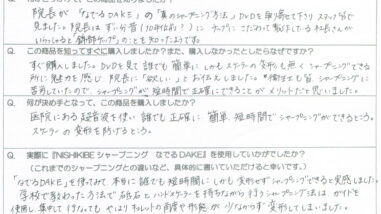 院長が「なでるDAKE」の「真のシャープニング方法」DVDを取り寄せて下さりスタッフ皆で
見ました。院長はずい分昔(10年位前?)に チップにこだわって製作している松本さんが
いらっしゃることを知ったようです。
Q. この商品を知ってすぐに購入しましたか?また、購入しなかったとしたらなぜですか?
すぐ購入しました。DVDを見て誰でも簡単にしかもスケーラーの変形も無くシャープニングできる
所に魅力を感じ、院長に「欲しい。」とお伝えしました。衛生士皆、シャープニングに
苦労していたので、シャープニングが短時間で正確にできることがメリットだと思いました。
Q. 何が決め手となって、この商品を購入しましたか?
医院にある超音波を使い誰でも正確に簡単、短時間でシャープニングができるところ。
スケーラーの変形を防げるところ。
Q. 実際に『NISHIKIBE シャープニング なでるDAKE』を使用していかがでしたか?
(これまでのシャープニングとの違いなど、具体的に書いていただけると幸いです。)
「なでるDAKE」を使ってみて本当に誰でも短時間にしかも変形せずシャープニングできると実感しました。
学校で教わった方法で砥石とハンドスケーラーを持ちながら行うシャープニング法は、ガイドを
使用し、集中して行なってもやはりキュレットの角度や形態が少なからず変化してしまいます。